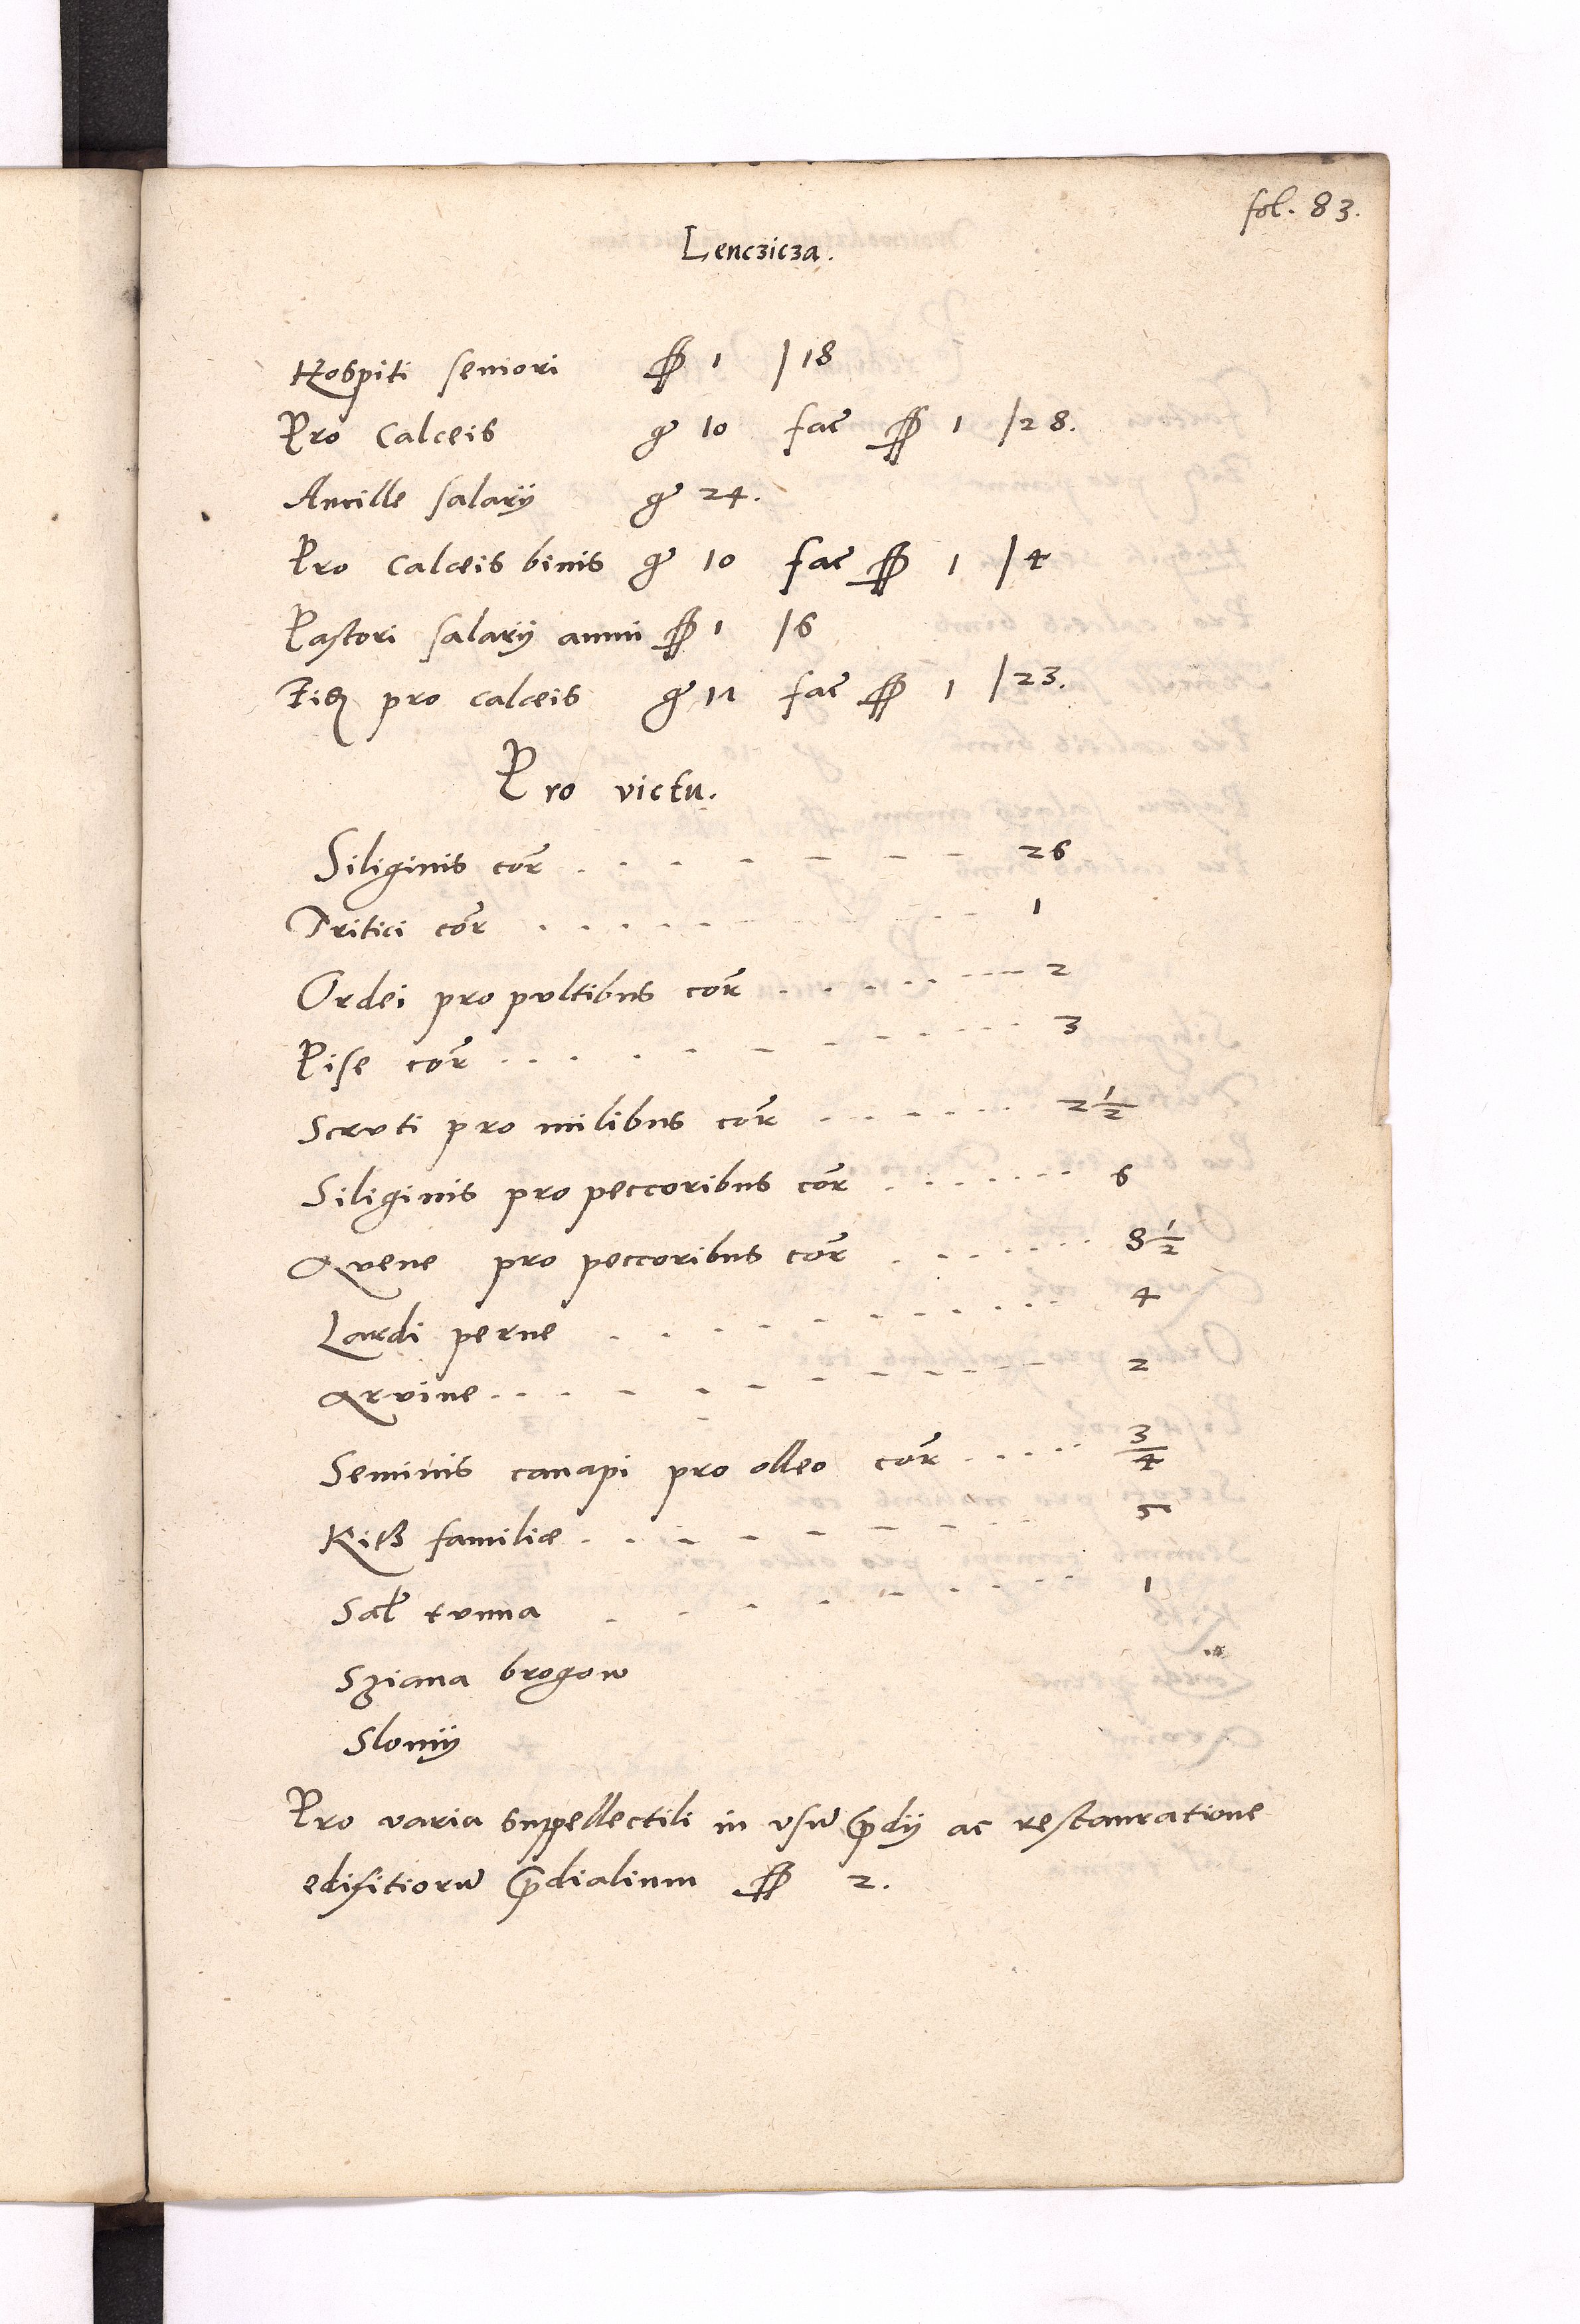 fol. 83.
Lenczicza.
Hospiti seniori ₻ 1 /18
Pro Calceis gr 10 fac ₻ 1 /28.
Ancille salarÿ gr 24.
Pro Calceis binis gr 10 fac ₻ 1 /4
Pastori salarÿ anni ₻ 1 /6
Eisdem pro calceis gr 17 fac ₻ 1 /23.
Pro victu.
Siliginis cor 26
Tritici cor 1
Ordei pro pultibus cor 2
Pise cor 3
Scruti pro milibus cor 2 1/2
Siliginis pro peccoribus cor 6
Avene pro peccoribus cor 8 1/2
Lardi perne 4
Arvine 2
Seminis canapi pro olleo cor 3/4
Kitß familiæ 5
Sal tunna 1
Sziana brogow
Slomÿ
Pro varia suppellectili in vsu prædÿ ac restauratione
edifitioru prædialium ₻ 2.